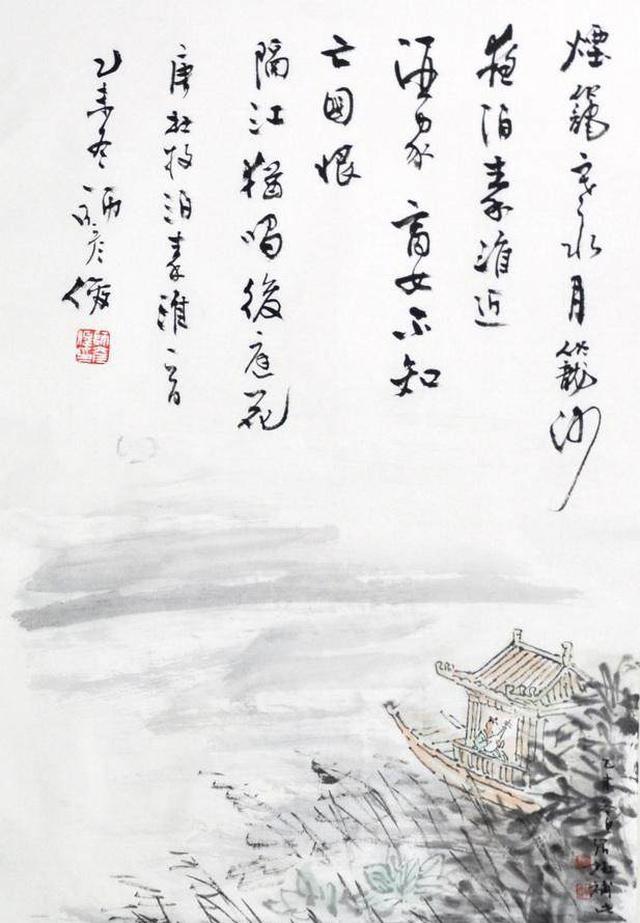 煙籠寒水月籠沙
夜泊秦淮近
酒家商女不知
亡國恨
隔江猶唱後庭花
唐杜牧泊秦淮一首
乙未冬
乙未